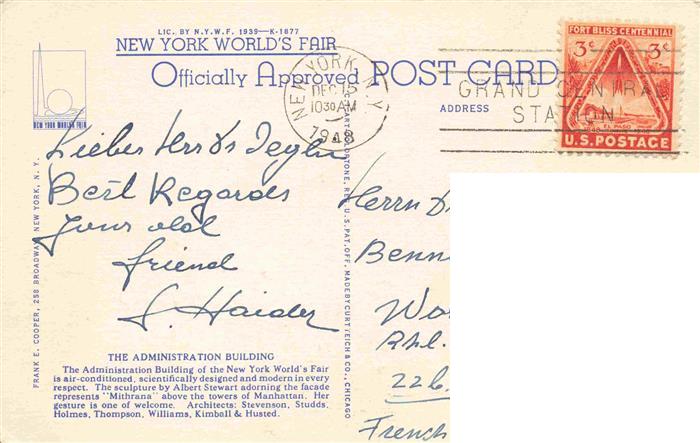 LIC. BY N.Y.W.F. 1939—K-1877
NEW YORK WORLD'S FAIR
Officially Approved POST CARD
NEW YORK WORLD'S FAIR
ADDRESS
NEW YORK, N.Y.
DEC 15
10 30 AM
1948
GRAND CENTRAL
STATION
FORT BLISS CENTENNIAL
3¢ 3¢
U.S. POSTAGE
Lieber Herr Dr
Best Regards
Your old
friend
J. Haider
Herrn D
Benn
Wo
Rhl.
22b
French
THE ADMINISTRATION BUILDING
The Administration Building of the New York World's Fair
is air-conditioned, scientifically designed and modern in every
respect. The sculpture by Albert Stewart adorning the facade
represents "Mithrana" above the towers of Manhattan. Her
gesture is one of welcome. Architects: Stevenson, Studds,
Holmes, Thompson, Williams, Kimball & Husted.
FRANK E. COOPER, 258 BROADWAY NEW YORK, N. Y.
REG. U. S. PAT. OFF. MADE BY CURT TEICH & CO., CHICAGO